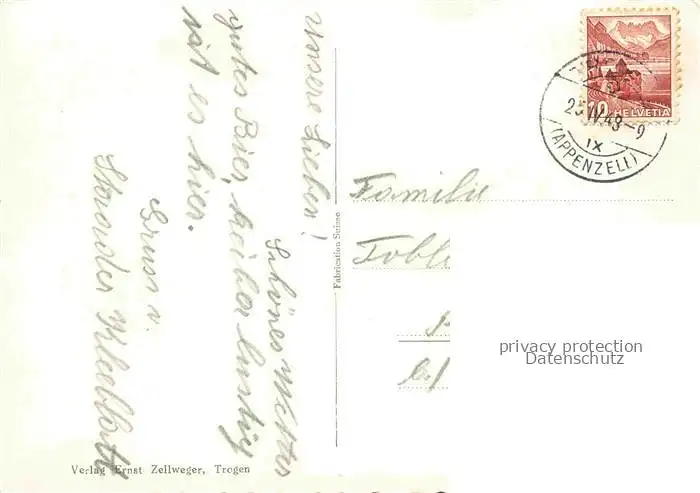 Unsere Lieben!
Schönes Wetter
gutes Bier, heiter lustig
ist es hier.
Gruss v.
Fabrication Suisse
Verlag Ernst Zellweger, Trogen
10 HELVETIA
25 IV 48-9
IX
(APPENZELL)
Familie
Tobl
privacy protection
Datenschutz